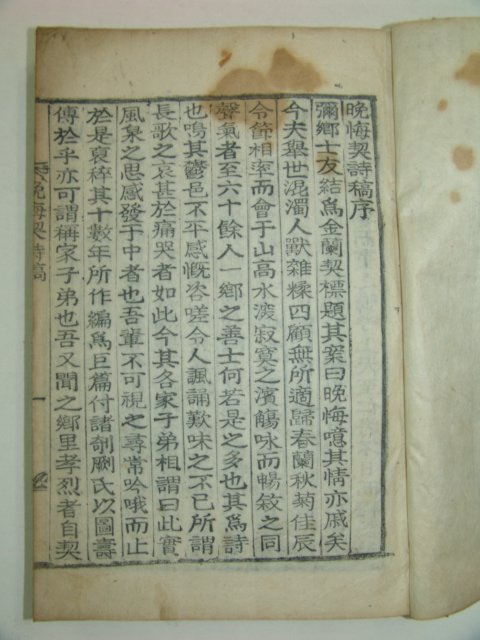 晚悔契詩稿序
彌鄉士友結爲金蘭契標題其案曰晚悔噫其情亦戚矣
今夫舉世混濁人獸雜糅四顧無所適歸春蘭秋菊佳辰
令節相率而會于山高水渡寂寞之濱觴咏而暢敘之同
聲氣者至六十餘人一鄉之善士何若是之多也其爲詩
也鳴其鬱邑不平感慨咨嗟令人諷誦歎味之不已所謂
長歌之哀甚於痛哭者如此今其各家子弟相謂曰此實
風泉之思感發于中者也吾輩不可視之尋常吟哦而止
於是裒稡其十數年所作編爲巨篇付諸剞劂氏以圖壽
傳於乎亦可謂稱家子弟也吾又聞之鄉里孝烈者自契
晚悔契詩稿
一